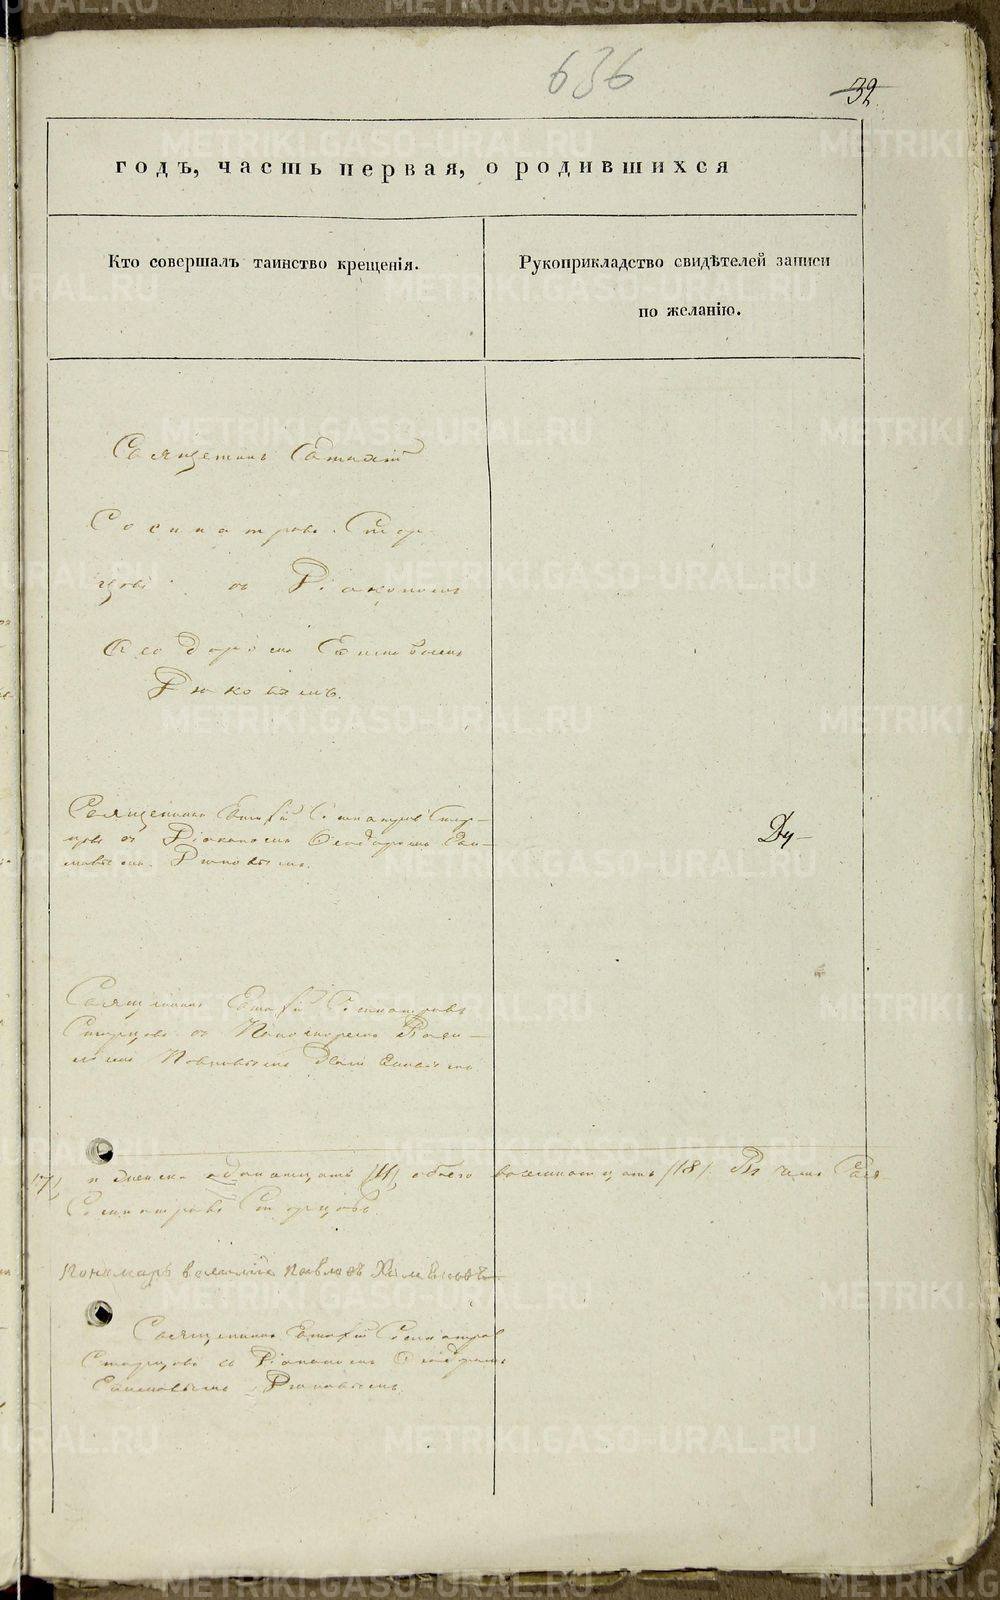 636
32
годъ, часть первая, о родившихся
Кто совершалъ таинство крещенія.
Рукоприкладство свидѣтелей записи
по желанію.
Священникъ Евтихій
Сосипатровъ Стар-
цовъ съ Діакономъ
Ѳеодоромъ
Рюковымъ.
Священникъ Евтихій Сосипатровъ Стар-
цовъ съ Діакономъ Ѳеодоромъ
Рюковымъ.
Ду-
Священникъ Евтихій Сосипатровъ
Старцовъ съ Пономаремъ Васи-
ліемъ Павловымъ
и женска одинатцать /11/, обоего восемнатцать /18/. Въ чемъ Свя-
Сосипатровъ Старцовъ
Пономарь василій павловъ
Священникъ Евтихій Сосипатровъ
Старцовъ съ Діакономъ Ѳеодоромъ
Рюковымъ.
METRIKI.GASO-URAL.RU